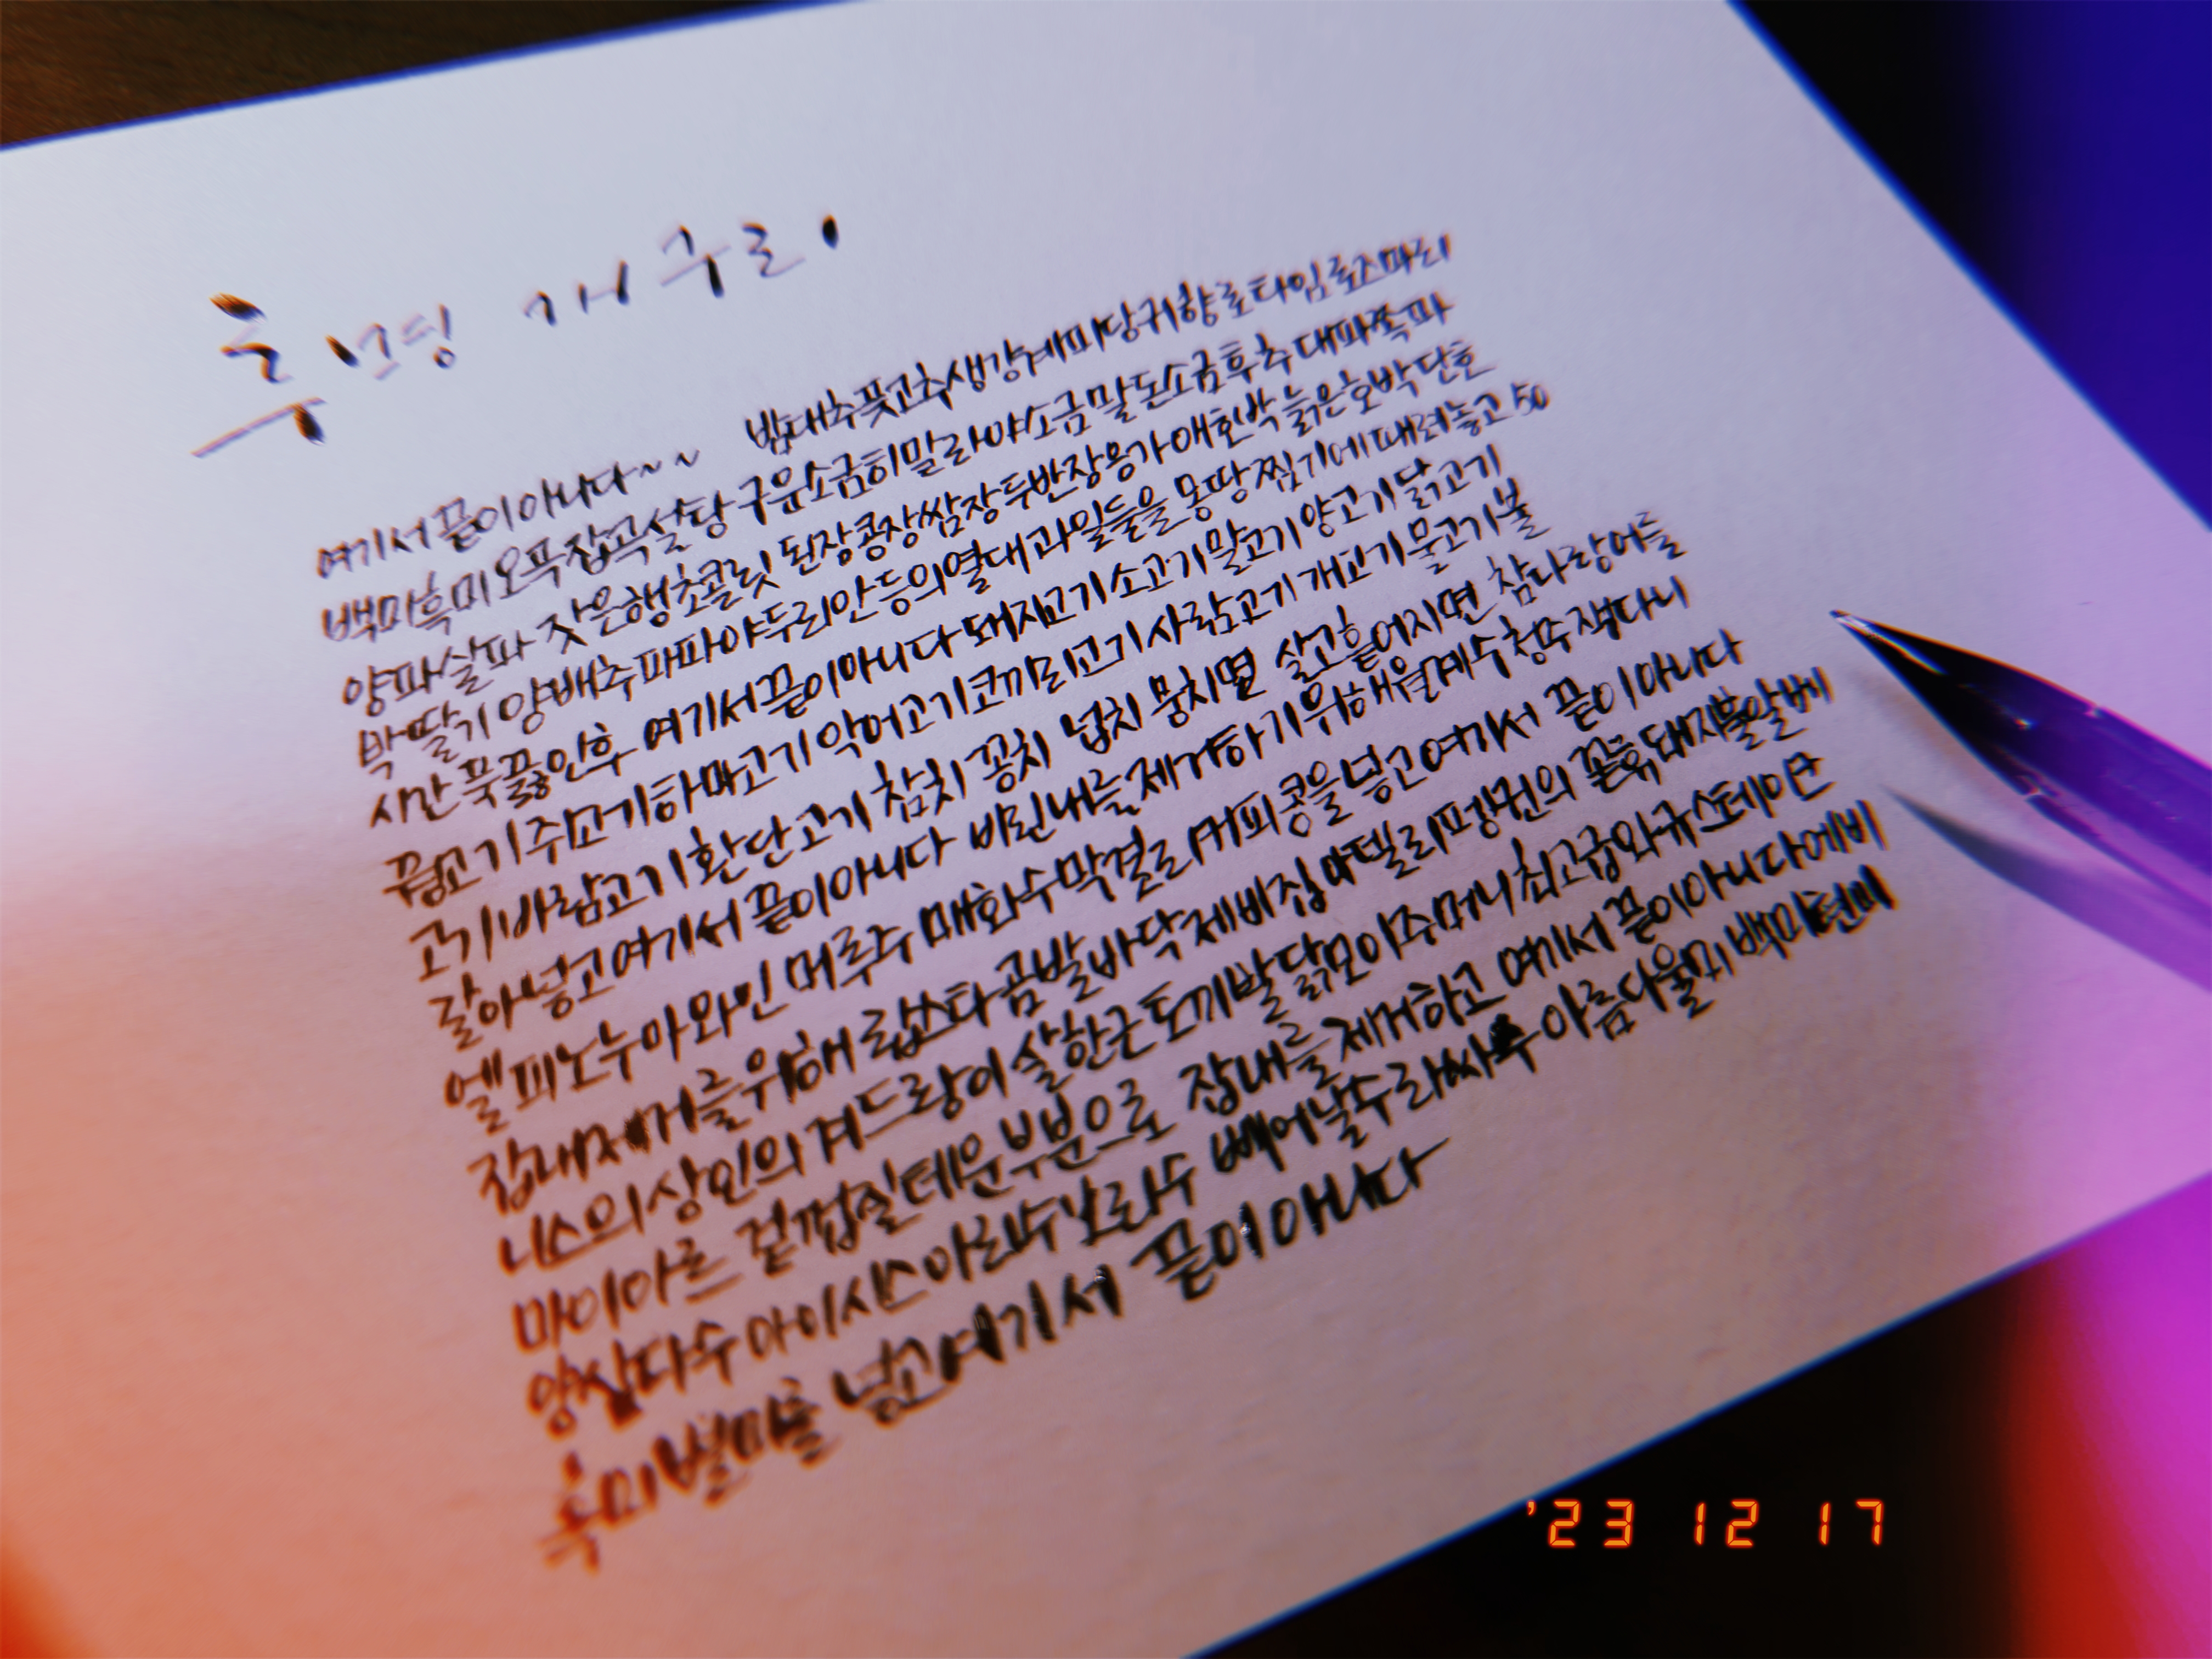 개구리
여기서끝이아니다~~ 밤대추풋고추생강계피당귀향로타임로즈마리
백미흑미오곡잡곡설탕구운소금히말라야소금말돈소금후추대파쪽파
양파실파 잣은행초콜릿 된장콩장쌈장두반장용가애호박늙은호박단호
박딸기양배추파파야두리안등의열대과일들을몽땅찜기에때려놓고50
시간푹끓인후 여기서끝이아니다돼지고기소고기말고기양고기닭고기
꿩고기쥐고기하마고기악어고기코끼리고기사람고기개고기물고기불
고기바람고기환단고기 참치 꽁치 넙치 뭉치면 살고흩어지면 참다랑어를
갈아넣고여기서끝이아니다 비린내를제거하기위해월계수청주잭다니
엘피노누아와인머루주매화수막걸리커피콩을넣고여기서 끝이아니다
잡내제거를위해랍스타곰발바닥제비집마텔리펭귄의 돼지불알베
니스의상인의겨드랑이살한근토끼발닭모이주머니최고급와규스테이크
마이아르 겉껍질태운부분으로 잡내를제거하고 여기서끝이아니다에비
앙삼다수아이시스아리수 빼어날수라싸수아름다울미백미현미
흑미별미를 넣고여기서 끝이아니다
'23 12 17